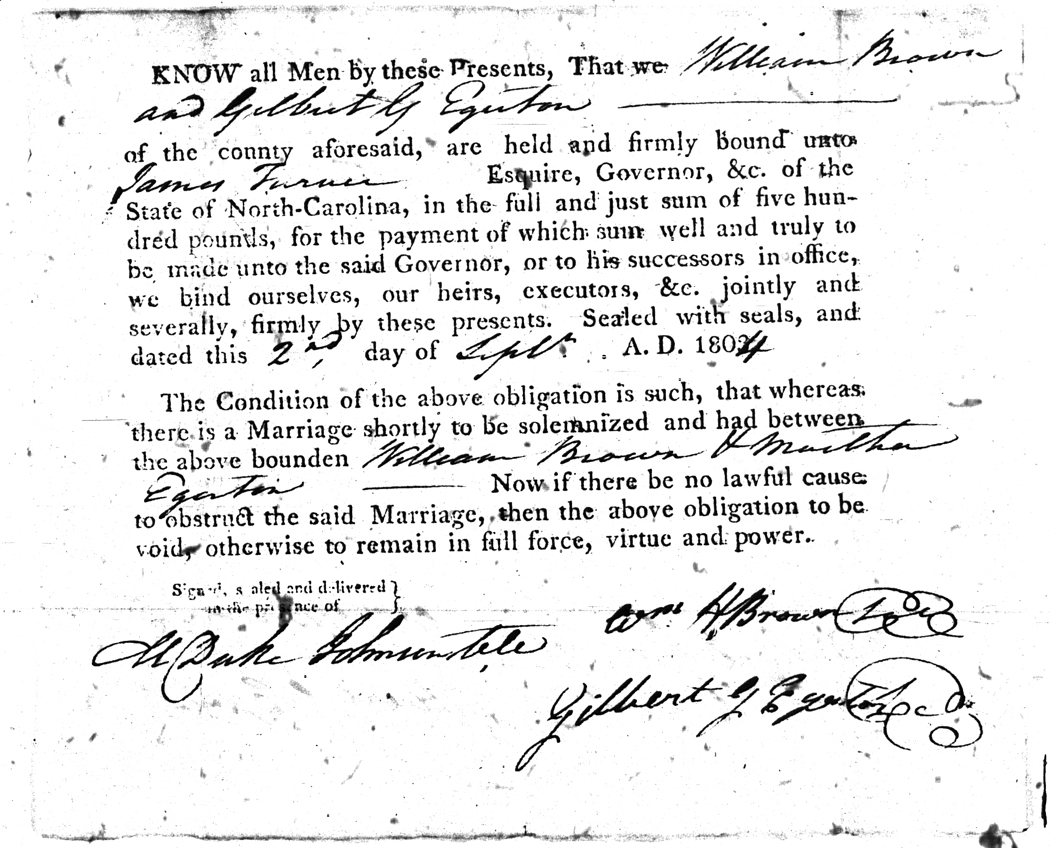 KNOW all Men by these Presents, That we William Brown
and Gilbert G Egerton
of the county aforesaid, are held and firmly bound unto
James Turner Esquire, Governor, &c. of the
State of North-Carolina, in the full and just sum of five hun-
dred pounds, for the payment of which sum well and truly to
be made unto the said Governor, or to his successors in office,
we bind ourselves, our heirs, executors, &c. jointly and
severally, firmly by these presents. Sealed with seals, and
dated this 2nd, day of Septr. A. D. 1804
The Condition of the above obligation is such, that whereas
there is a Marriage shortly to be solemnized and had between
the above bounden William Brown & Martha
Egerton Now if there be no lawful cause
to obstruct the said Marriage, then the above obligation to be
void, otherwise to remain in full force, virtue and power.
Signed, sealed and delivered
in the presence of
M Duke Johnson
Wm H Brown
Gilbert G Egerton